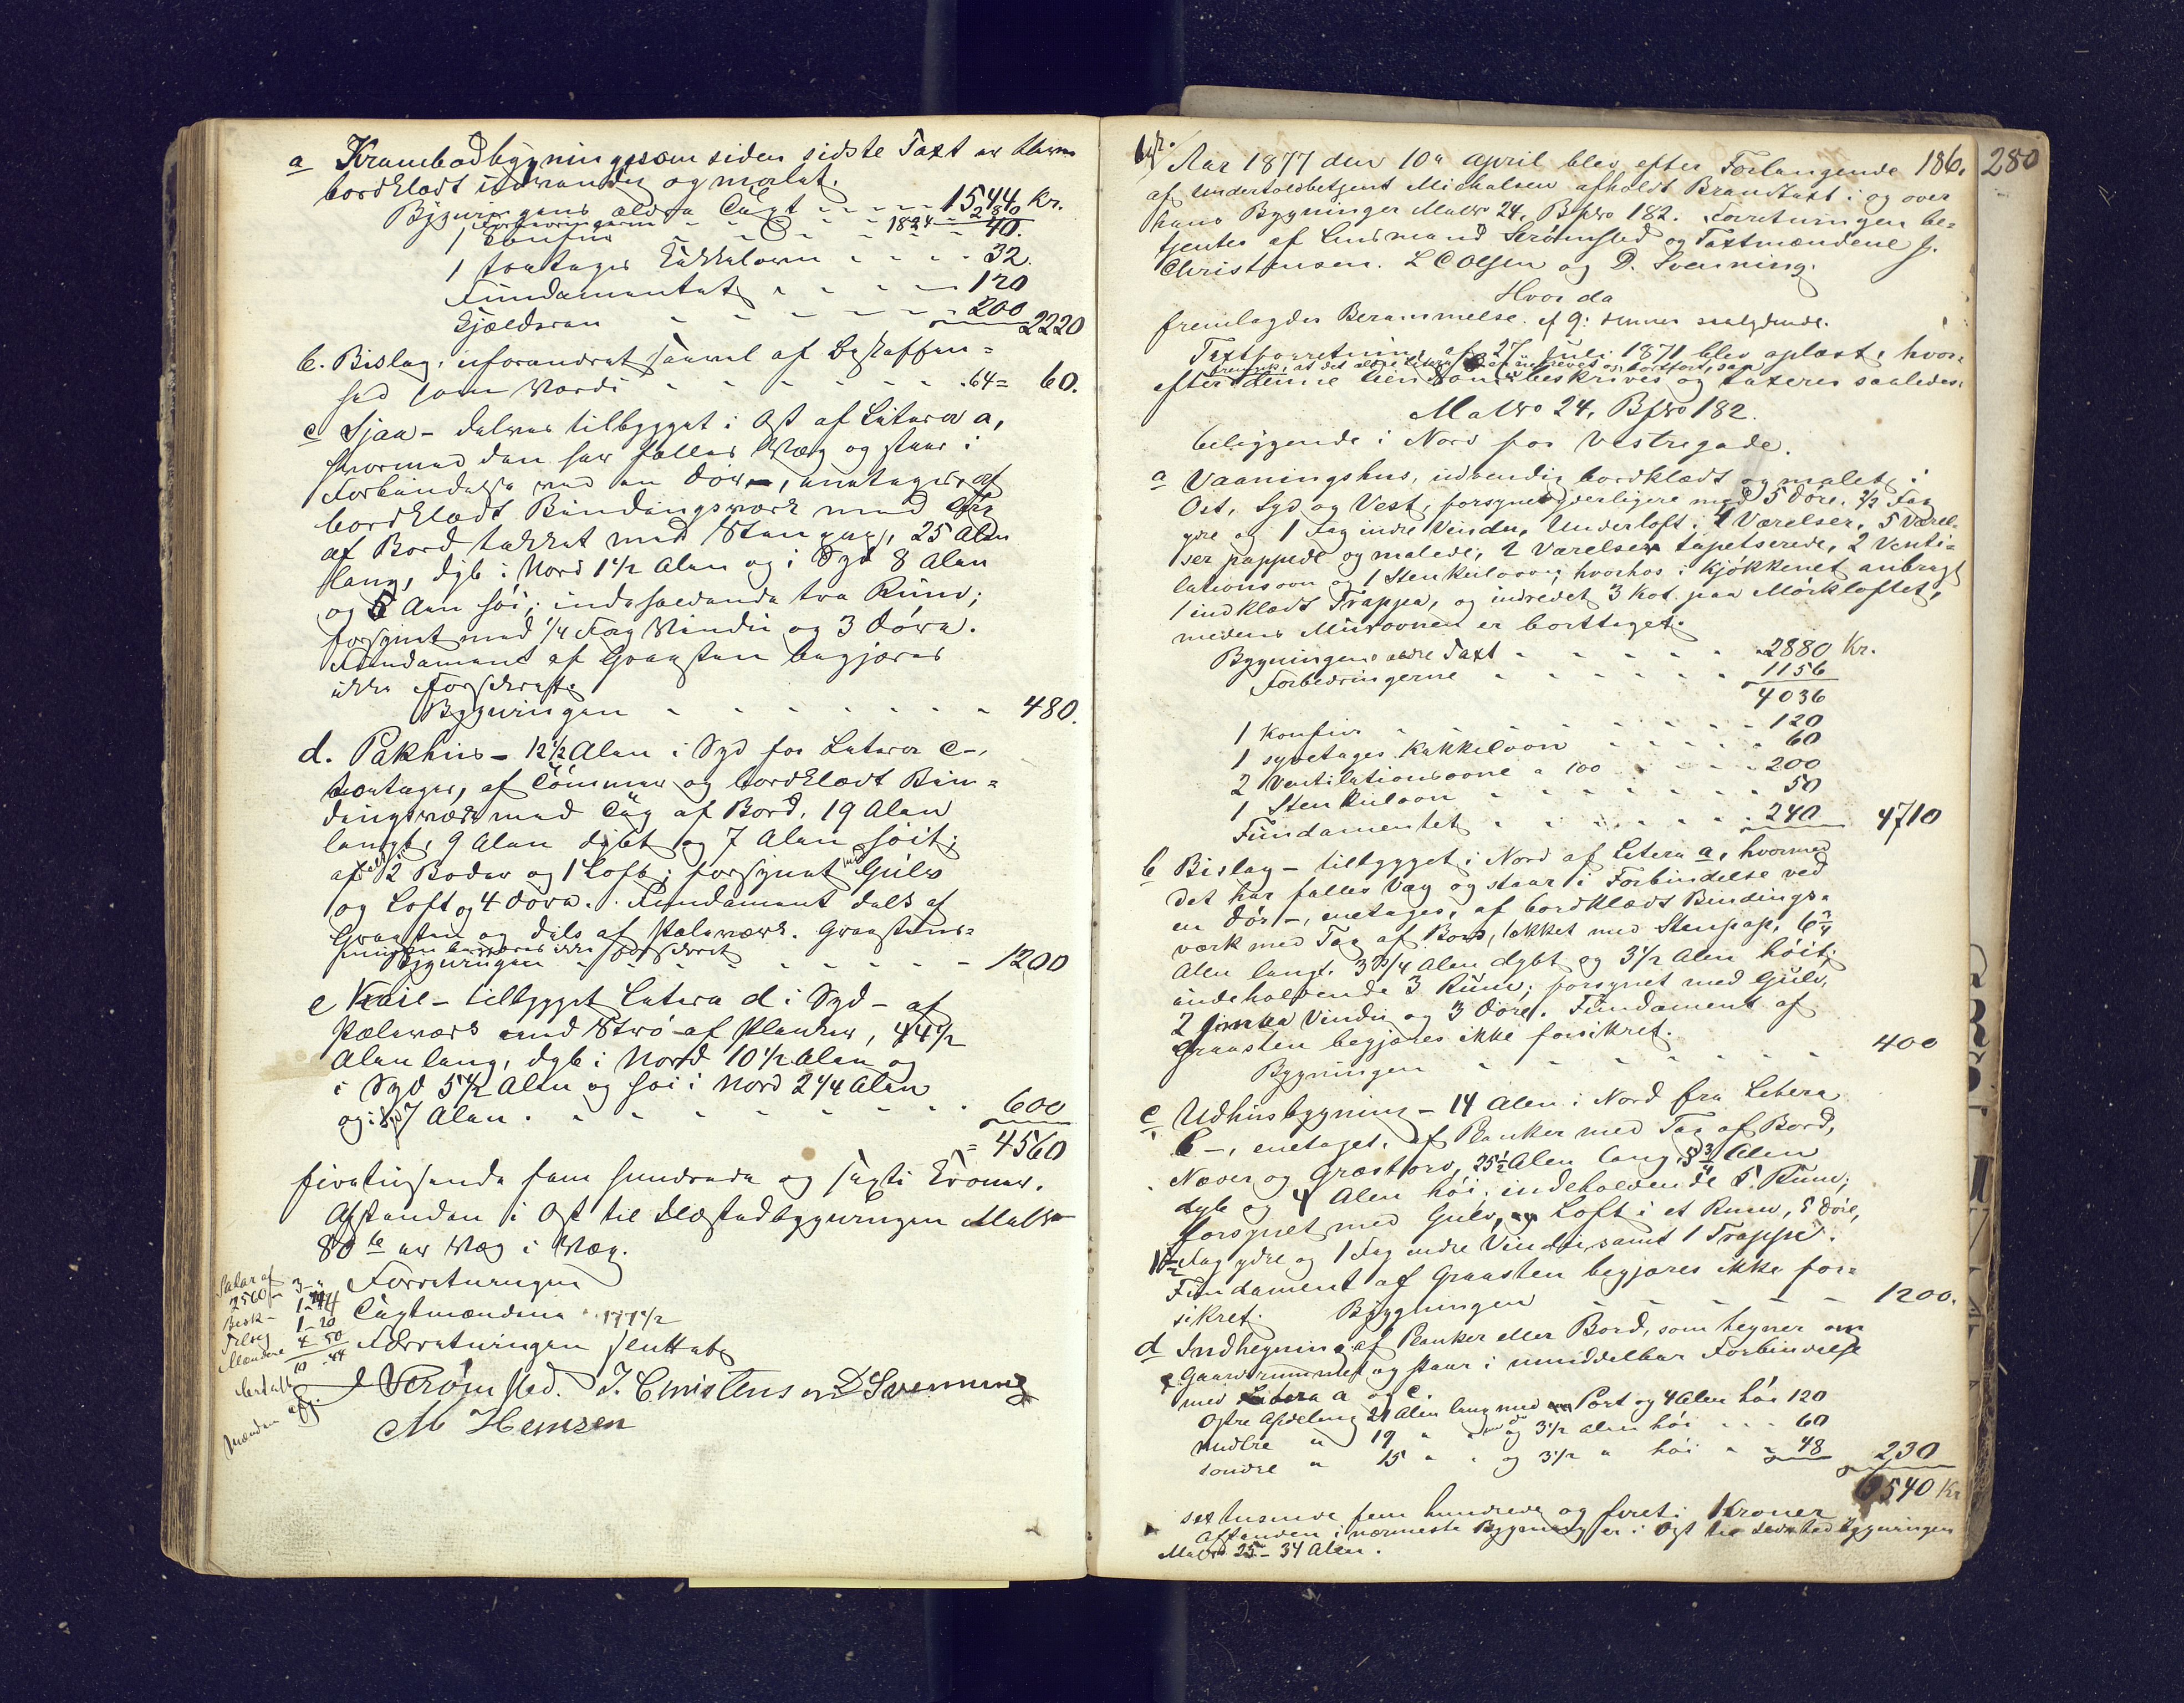 a Krambodbygning som siden sidste Taxt er
bordklædt udvendig og malet.
Bygningens ældre Taxt - - - 1544 Kr.
Forbedringerne - - - 280
1824
1 Konfur - - - 40.
1 toetages Kakkelovn - - - 32.
Fundamentet - - - 120
Kjælderen - - - 200 2220
b. Bislag, uforandret saavel af Beskaffen=
hed som Værdi - - - 64= 60.
c Sjaa - delvis tilbygget i Øst af Litera a,
hvormed den har fælles Væg og staar i
Forbindelse ved en Dör -, enetages, af
bordklædt Bindingsværk med Tag
af Bord takket med Stenpap, 25 Alen
lang, dyb i Nord 1 1/2 Alen og i Syd 8 Alen
og 5 Alen høi; indeholdende tre Rum;
forsynet med 1/4 Fag Vindu og 3 Döre.
Fundament af Graasten begjæres
ikke forsikret.
Bygningen - - - 480.
d. Pakhus - 12 1/2 Alen i Syd for Litera c -,
toetages, af Tømmer og bordklædt Bin=
dingsværk med Tag af Bord, 19 Alen
langt, 9 Alen dybt og 7 Alen høit;
af 2 Boder og 1 Loft; forsynet med Gulv
og Loft og 4 Döre. Fundament dels af
Graasten og dels af Pæleværk. Graastens=
muren begjæres ikke forsikret
Bygningen - - - 1200
e Kaie - tilbygget Litera d i Syd - af
Pæleværk med Strö af Planker, 44 1/2
Alen lang, dyb i Nord 10 1/2 Alen og
i Syd 5 1/2 Alen og høi i Nord 2 1/4 Alen
og i Syd 7 Alen. - - - 600
= 4560
firetusende fem hundrede og sexti Kroner.
Afstanden i Öst til Bygningen Matr
80 b er Væg i Væg.
Forretningen
Taxtmændene
Forretningen sluttet
Salar af
2560 3 -
Besk - 1 - 44
Tillæg 1 - 20
Mændene 4 - 50
10 - 44
betalt
Mænden afg.
Strømsted. J. Christensen D Svenning
M Hemsen
Aar 1877 den 10de April blev efter Forlangende 186. 280
af Undertoldbetjent Michalsen afholdt Brandtaxt i og over
hans Bygninger Matr 24, Bpro 182. Forretningen be=
tjentes af Lensmand Strømsted og Taxtmændene J.
Christensen. L C Olsen og D. Svenning.
Hvor da
fremlagdes Berammelse af 9: dennes saalydende.
Taxtforretning af 27 Juli 1871 blev oplæst, hvor=
efter denne Eiendom beskrives og taxeres saaledes:
Matro 24, Bpro 182.
beliggende i Nord for Vestregade.
a Vaaningshus, udvendig bordklædt og malet i
Ost, Syd og Vest, forsynet yderligere med 5 Döre, 2/2 Fag
ydre og 1 Fag indre Vindu, Underloft i 4 Værelser, 5 Værel=
ser pappede og malede, 2 Værelser tapetserede, 2 Venti=
lationsovn og 1 Stenkulovn, hvorhos i Kjøkkenet anbragt
1 indklædt Trappe, og indredet 3 Kot paa Mørkloftet,
medens Muurovnen er borttaget.
Bygningens ældre Taxt - - - 2880 Kr.
Forbedringerne - - - 1156
4036
1 Konfur - - - 120
1 syvetages Kakkelovn - - - 60
2 Ventilationsovne a 100 - - - 200
1 Stenkulovn - - - 50
Fundamentet - - - 240 4710
b Bislag - tilbygget i Nord af Litera a, hvormed
det har fælles Væg og staar i Forbindelse ved
en Dör -, enetages, af bordklædt Bindings=
værk med Tag af Bord, takket med Stenpap, 6 3/4
Alen langt, 3 3/4 Alen dybt og 3 1/2 Alen höit;
indeholdende 3 Rum; forsynet med Gulv,
2 smaa Vindu og 3 Döre. Fundament af
Graasten begjæres ikke forsikret.
Bygningen - - - 400
c Udhusbygning - 14 Alen i Nord fra Litera
b -, enetages, af Planker med Tag af Bord,
Næver og Græstorv, 25 1/2 Alen lang, 8 3/4 Alen
dyb og 4 Alen höi; indeholdende 5 Rum;
forsynet med Gulv, Loft i et Rum, 5 Döre,
Fag ydre og 1 Fag indre Vindu, samt 1 Trappe.
Fundament af Graasten begjæres ikke for=
sikret. Bygningen - - - 1200.
d Indhegning af Planker eller Bord, som hegner om
Gaardsrummet og staar i umiddelbar Forbindelse
med Litera a og c.
Östre Afdeling 21 Alen lang med Port og 4 Alen höi 120
nordre " 19 " og 3 1/2 Alen höi - - 60
sondre " 15 " og 3 1/2 " höi - - 48 230
6540 Kr
sex tusinde fem hundrede og firreti Kroner
Afstanden i nærmeste Bygning er i Öst til Bygningen
Matro 25 - 34 Alen.